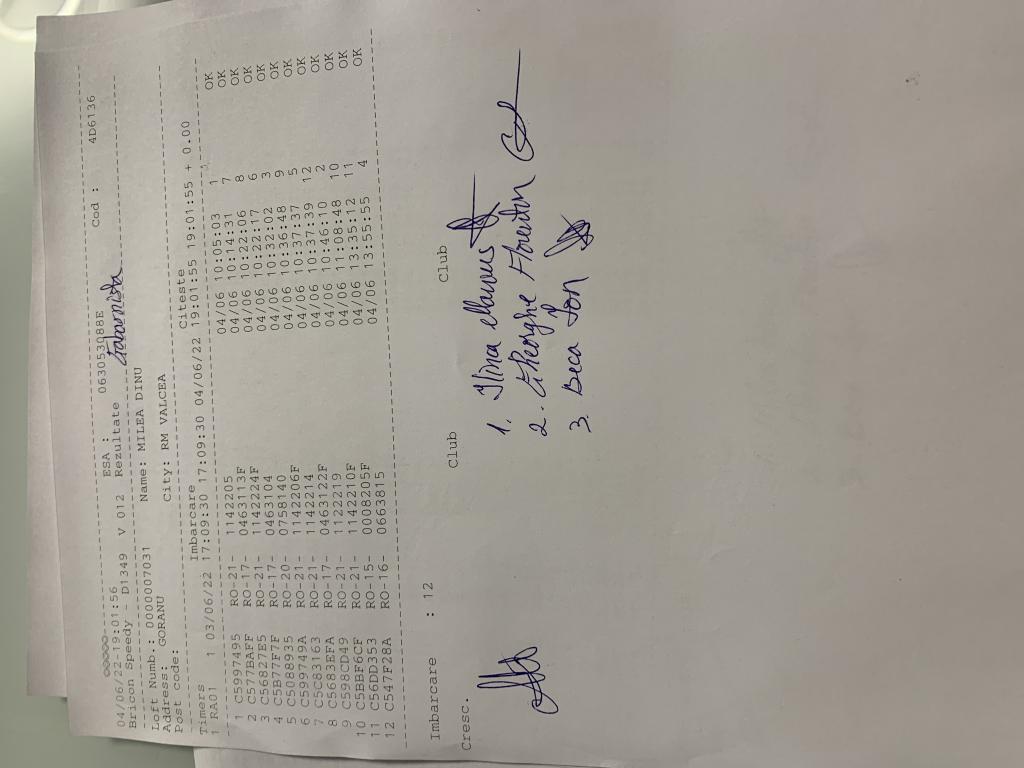 04/06/22-19:01:56 ESA : 063053088E Cod : 4D6136
Bricon Speedy - D1349 V 012 Rezultate
Loft Numb.: 0000007031 Name: MILEA DINU
Address: GORANU
Post code: City: RM VALCEA
Imbarcare Citeste
Timers 17:09:30 17:09:30 04/06/22 19:01:55 19:01:55 + 0.00
1 RA01 1 03/06/22
1 C5997495 RO-21- 1142205 04/06 10:05:03 1 OK
2 C577BAFF RO-17- 0463113F 04/06 10:14:31 7 OK
3 C56827E5 RO-21- 1142224F 04/06 10:22:06 8 OK
4 C5B77F7F RO-17- 0463104 04/06 10:22:17 6 OK
5 C5088935 RO-20- 0758140 04/06 10:32:02 3 OK
6 C599749A RO-21- 1142206F 04/06 10:36:48 9 OK
7 C5C83163 RO-21- 1142214 04/06 10:37:37 5 OK
8 C5683EFA RO-17- 0463122F 04/06 10:37:39 12 OK
9 C598CD49 RO-21- 1122219F 04/06 10:46:10 2 OK
10 C5BBF6CF RO-21- 1142210F 04/06 11:08:48 10 OK
11 C56DD353 RO-15- 0008205F 04/06 13:35:12 11 OK
12 C547F28A RO-16- 0663815 04/06 13:55:55 4 OK
Imbarcare : 12
Cresc. Club Club
1. Ilina Marius
2. Gheorghe Florentin
3. Deca Ion